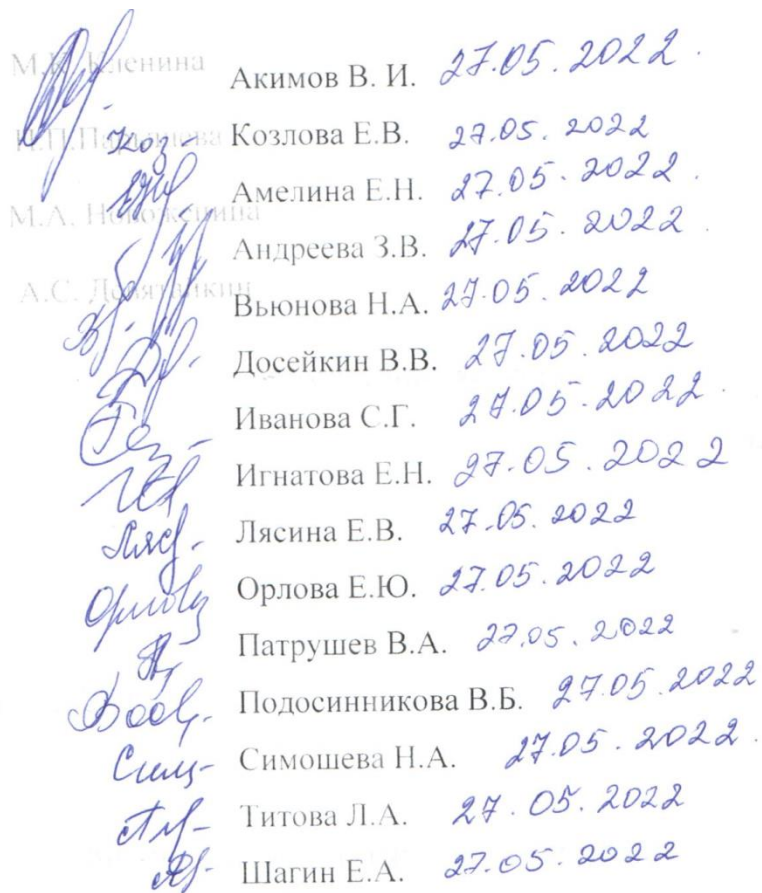 М.К. Кленина
Акимов В. И. 27.05.2022.
Коз- Козлова Е.В. 27.05.2022
Амелина Е.Н. 27.05.2022.
М.А. Новоженина
Андреева З.В. 27.05.2022.
А.С. Девятайкин
Вьюнова Н.А. 27.05.2022
Досейкин В.В. 27.05.2022
Иванова С.Г. 27.05.2022.
Игнатова Е.Н. 27.05.2022
Ляс- Лясина Е.В. 27.05.2022
Орлова Е.Ю. 27.05.2022
Патрушев В.А. 27.05.2022
Подосинникова В.Б. 27.05.2022
Симошева Н.А. 27.05.2022.
Титова Л.А. 27.05.2022
Шагин Е.А. 27.05.2022